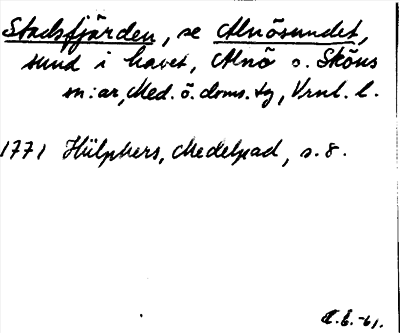 Stadsfjärden, se Alnösundet,
sund i havet, Alnö o. Sköns
sn:ar, Med. ö. doms. tg, Vrnl. l.
1771 Hülphers, Medelpad, s. 8.
C.E. -61.